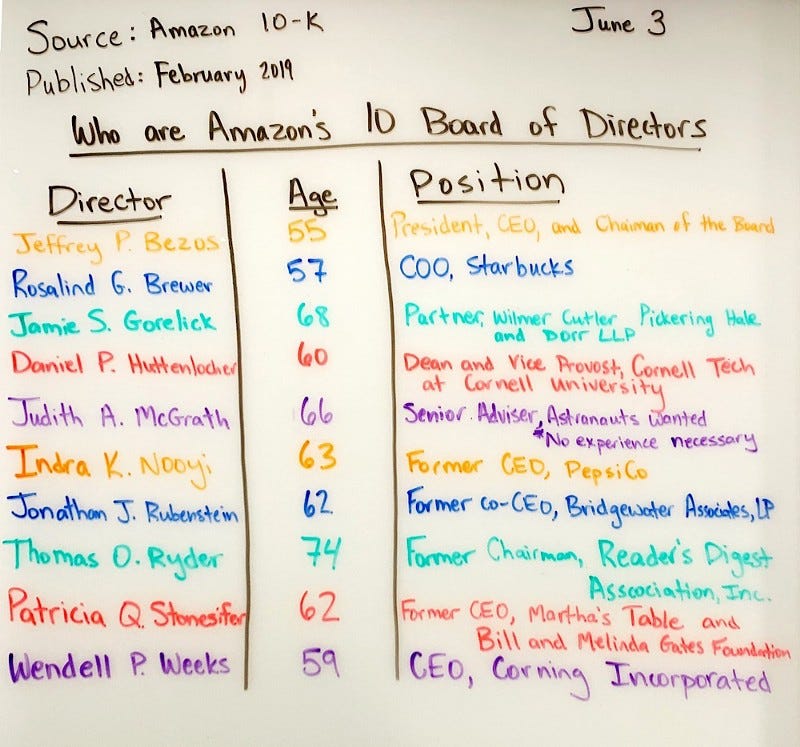 Source: Amazon 10-K June 3
Published: February 2019
Who are Amazon's 10 Board of Directors
Director Age Position
Jeffrey P. Bezos 55 President, CEO, and Chaiman of the Board
Rosalind G. Brewer 57 COO, Starbucks
Jamie S. Gorelick 68 Partner, Wilmer Cutler Pickering Hale
and Dorr LLP
Daniel P. Huttenlocher 60 Dean and Vice Provost, Cornell Tech
at Cornell University
Judith A. McGrath 66 Senior Adviser, Astronauts wanted
*No experience necessary
Indra K. Nooyi 63 Former CEO, PepsiCo
Jonathan J. Rubenstein 62 Former co-CEO, Bridgewater Associates, LP
Thomas O. Ryder 74 Former Chairman, Reader's Digest
Asscociation, Inc.
Patricia Q. Stonesifer 62 Former CEO, Martha's Table and
Bill and Melinda Gates Foundation
Wendell P. Weeks 59 CEO, Corning Incorporated